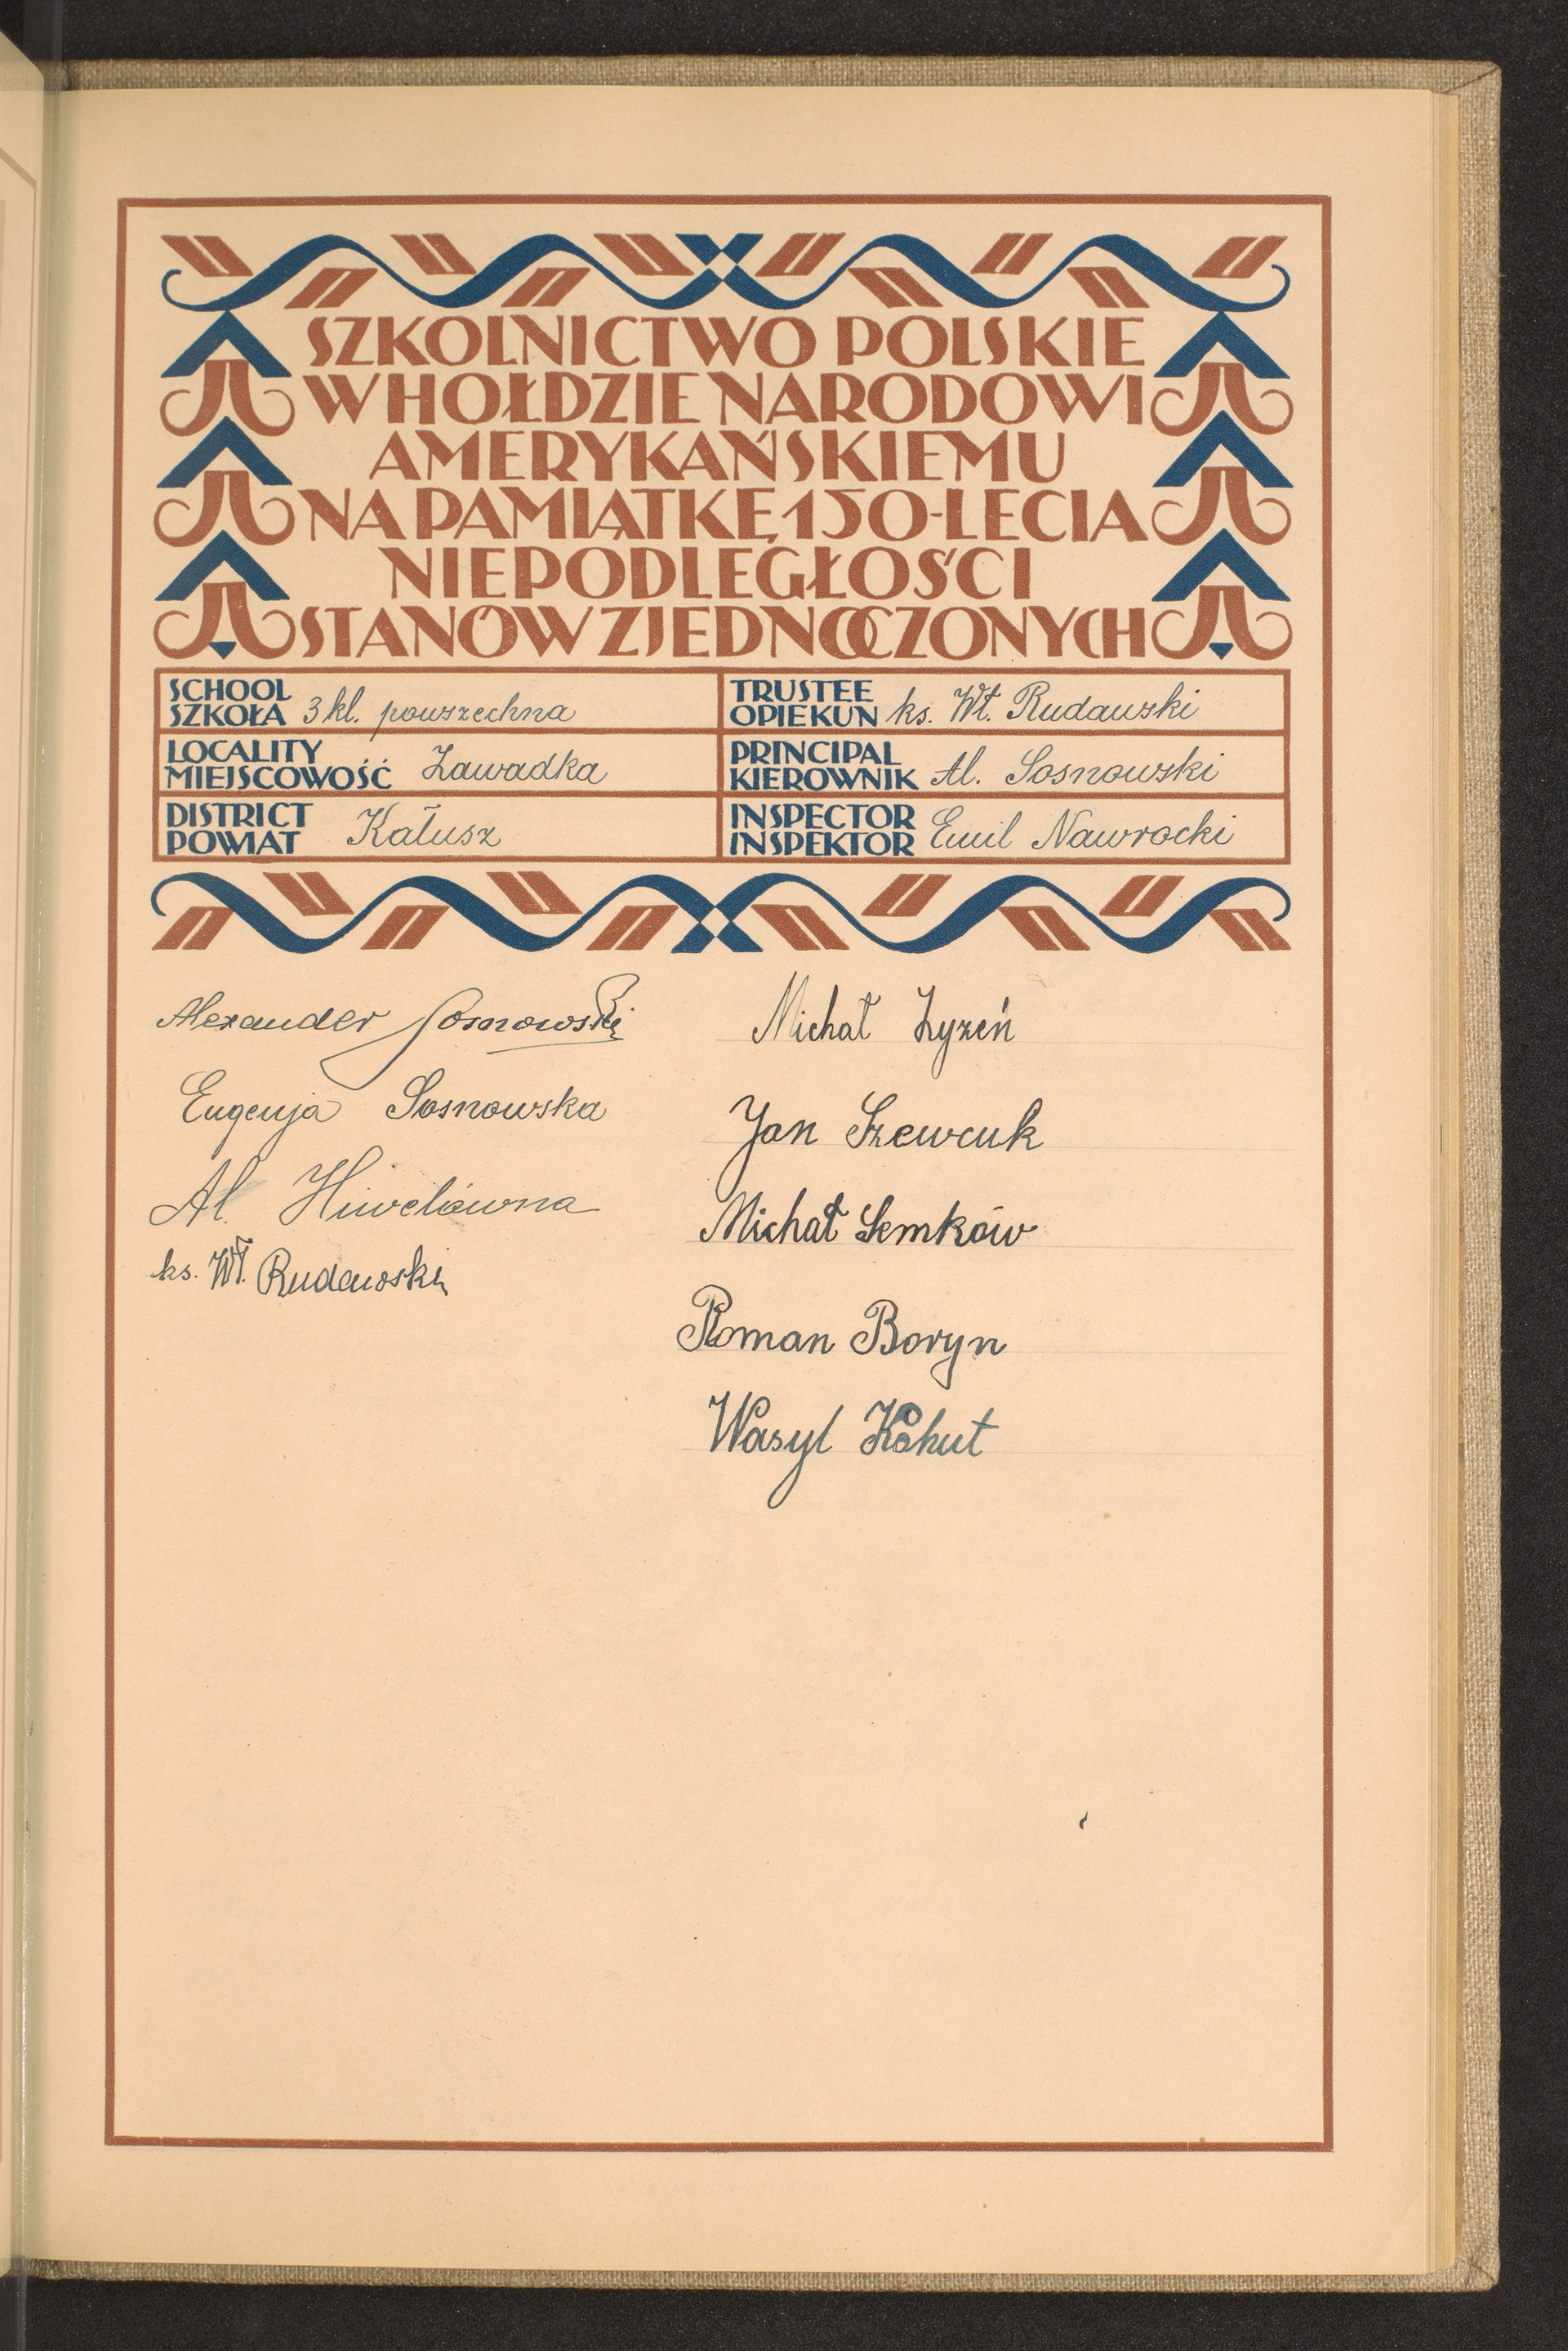 SZKOLNICTWO POLSKIE
W HOŁDZIE NARODOWI
AMERYKAŃSKIEMU
NA PAMIĄTKĘ 150-LECIA
NIEPODLEGŁOŚCI
STANÓW ZJEDNOCZONYCH
SCHOOL
SZKOŁA 3 kl. powszechna
TRUSTEE
OPIEKUN ks. Wł. Rudawski
LOCALITY
MIEJSCOWOŚĆ Zawadka
PRINCIPAL
KIEROWNIK Al. Sosnowski
DISTRICT
POWIAT Kałusz
INSPECTOR
INSPEKTOR Emil Nawrocki
Alexander Sosnowski
Eugenja Sosnowska
Al. Hiwelówna
ks. Wł. Rudawski
Michał Zyzeń
Jan Szewcuk
Michał Semków
Roman Boryn
Wasyl Kohut